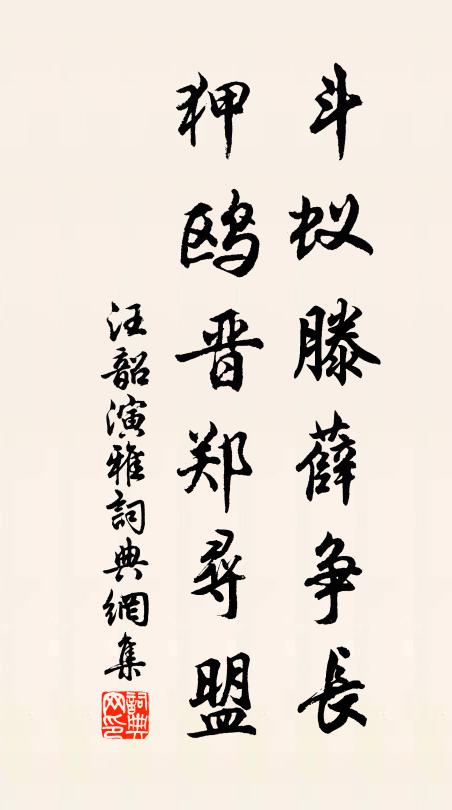 斗蚁滕薛争长
狎鸥晋郑寻盟
汪韶演雅詞典網集
詞典网印